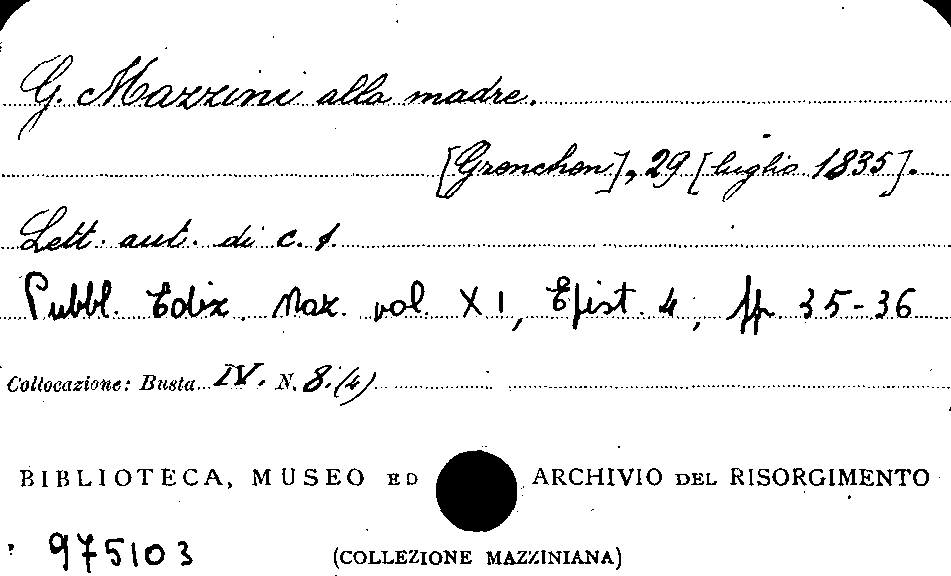 G. Mazzini alla madre.
[Grenchen], 29 [luglio 1835].
Lett. aut. di c. 1.
Pubbl. Ediz. Naz. vol. XI, Epist. 4, pp. 35-36
Collocazione: Busta IV. N. 8.(4)
BIBLIOTECA, MUSEO ED ARCHIVIO DEL RISORGIMENTO
975103 (COLLEZIONE MAZZINIANA)